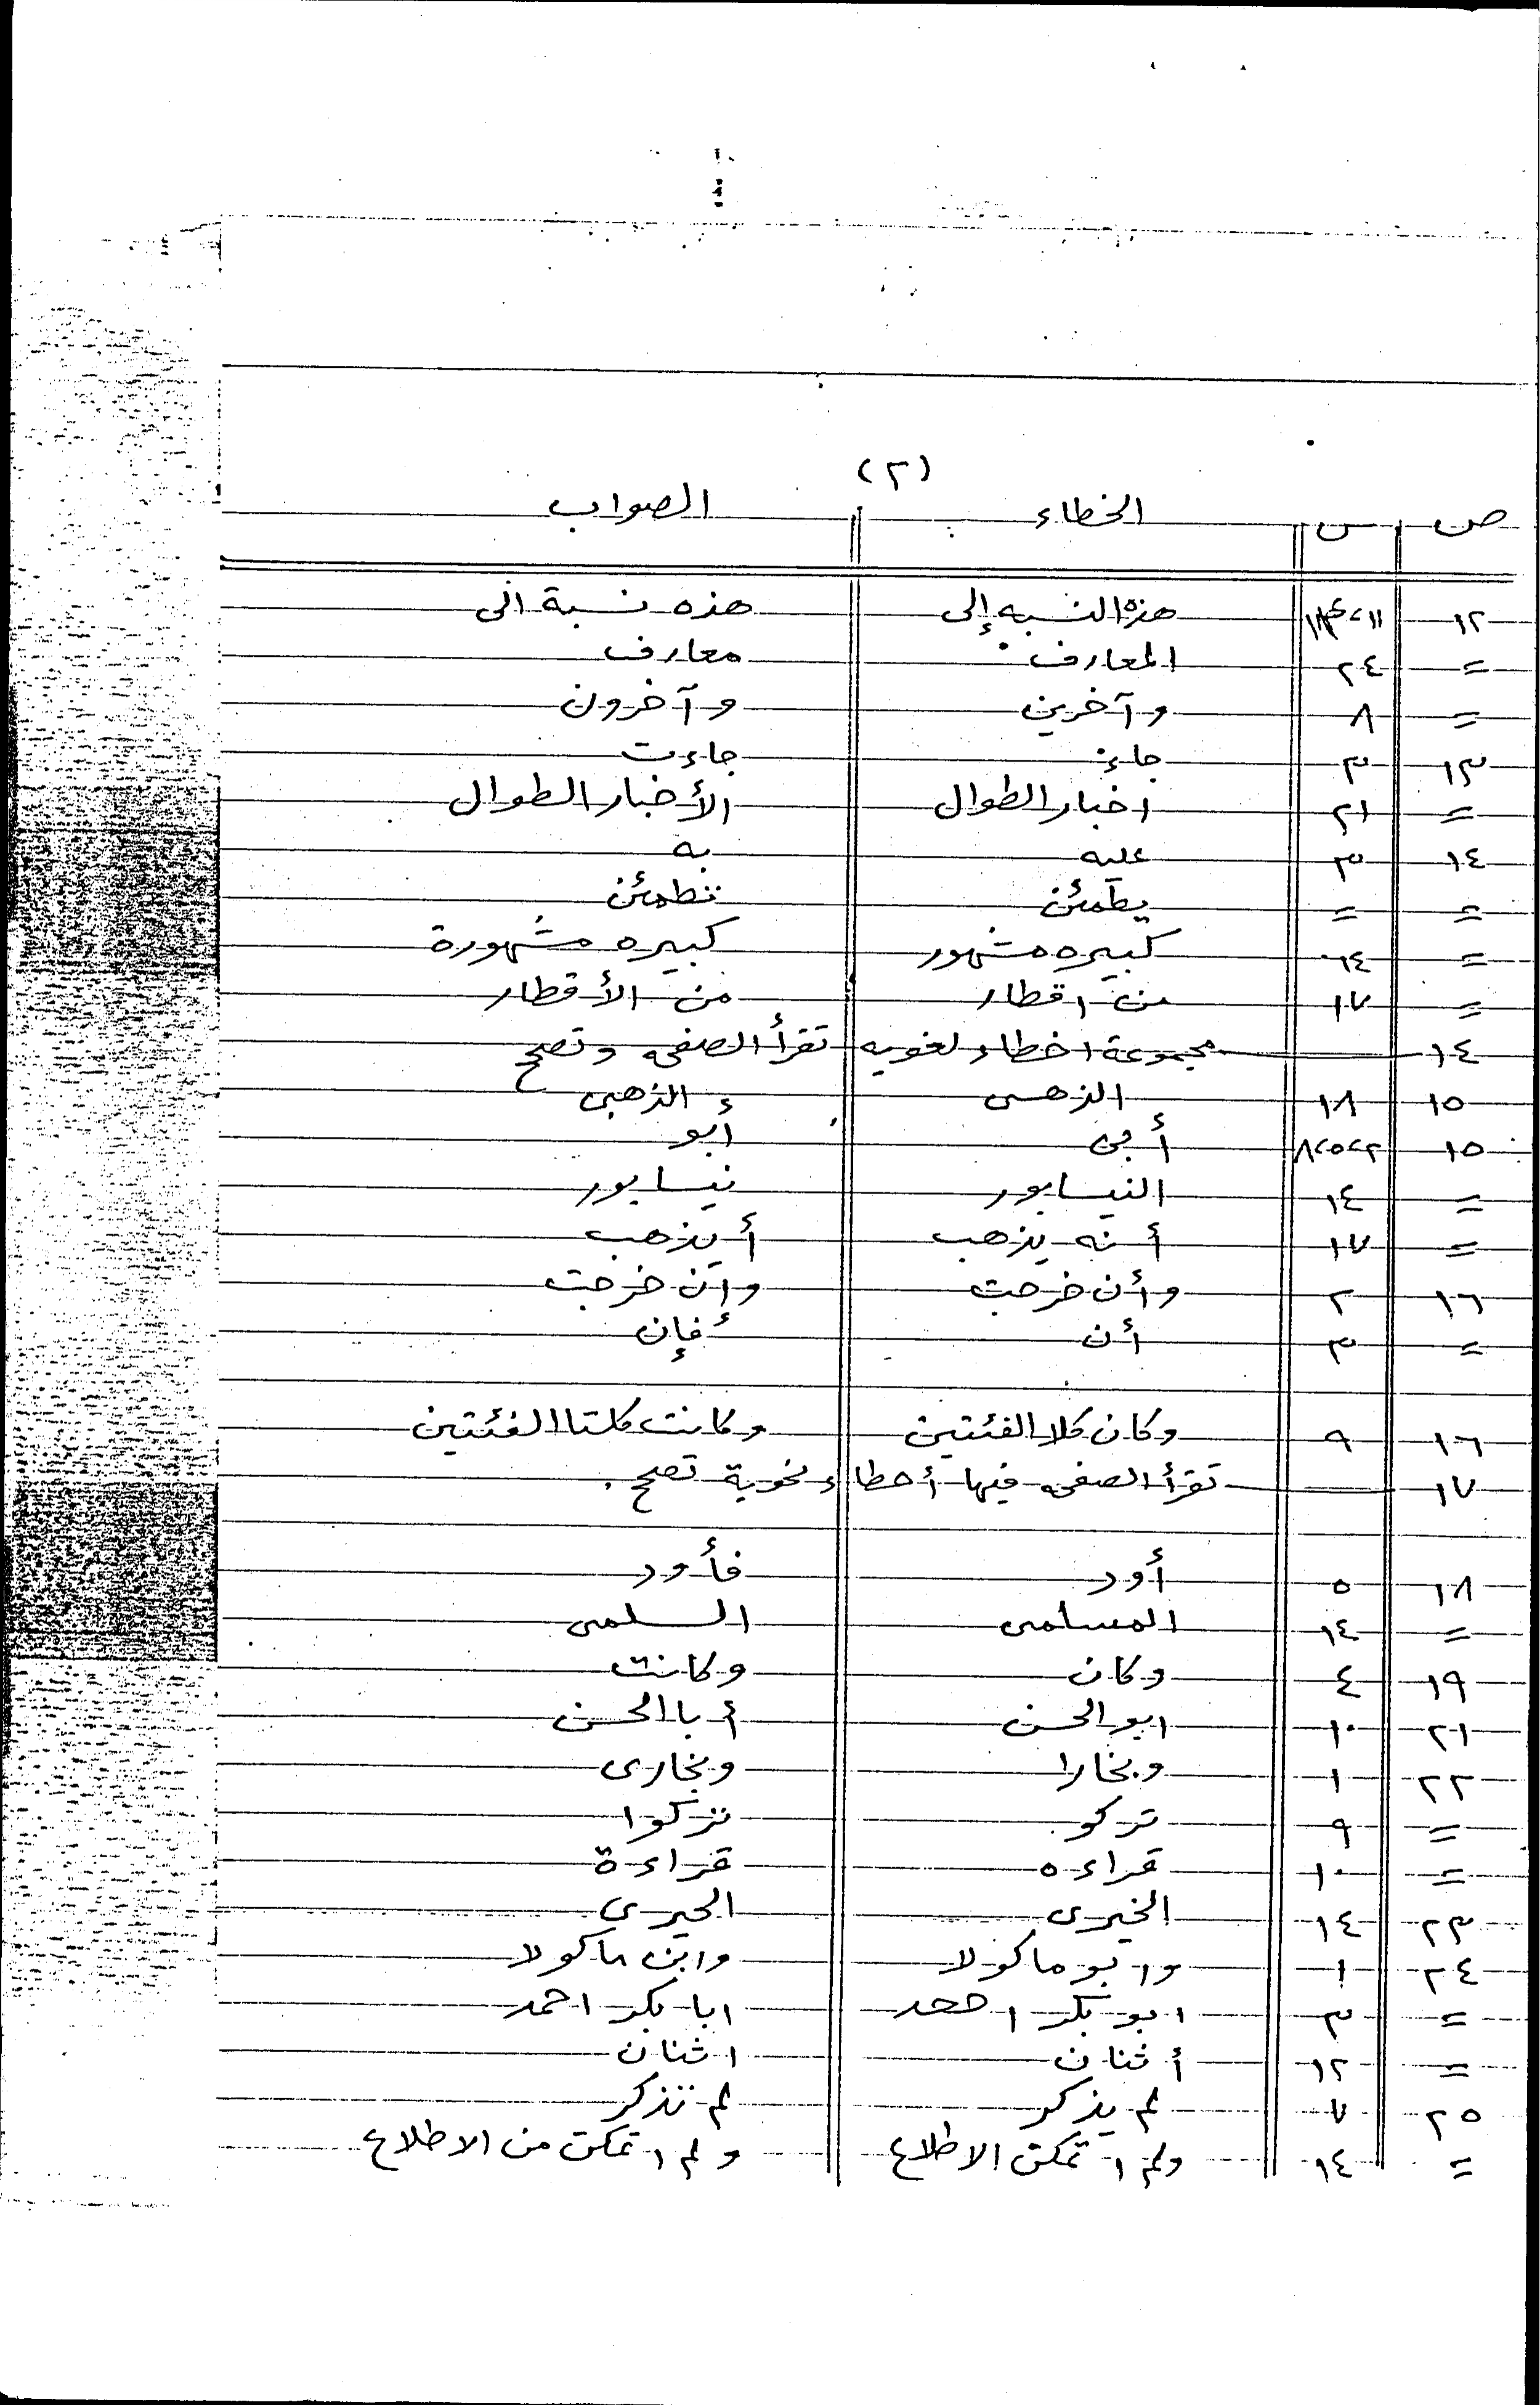 (٢)
ص س الخطاء الصواب
١٢ ١١ هذه النسبه إلى هذه نسبة الى
= ٢٤ المعارف معارف
= ٨ وآخرين وآخرون
١٣ ٣ جاء جاءت
= ٢١ اخبار الطوال الأخبار الطوال
١٤ ٣ عليه به
= = يطمئن تطمئن
= ١٤ كبيره مشهور كبيره مشهورة
= ١٧ من اقطار من الأقطار
١٤ مجموعة اخطاء لغويه تقرأ الصفحه وتصحح
١٥ ١٨ الذهبى الذهبى
١٥ ٢،٥،٨ أبى أبو
= ١٤ النيسابور نيسابور
= ١٧ أنه يذهب أيذهب
١٦ ٢ وأن خرجت وإن خرجت
= ٣ أن أفإن
١٦ ٩ وكان كلا الفئتين وكانت كلتا الفئتين
١٧ تقرأ الصفحه فيها أخطاء نحوية تصحح.
١٨ ٥ أود فأود
= ١٤ المسلمى السلمى
١٩ ٤ وكان وكانت
٢١ ١٠ ابو الحسن أبا الحسن
٢٢ ١ وبخارا وبخارى
= ٩ تركو تركوا
= ١٠ قراءه قراءة
٢٣ ١٤ الخيرى الحيرى
٢٤ ١ وابو ماكولا وابن ماكولا
= ٣ ابو بكر احمد ابا بكر احمد
= ١٢ أثنان اثنان
٢٥ ٧ لم يذكر لم تذكر
= ١٤ ولم اتمكن الاطلاع ولم اتمكن من الاطلاع